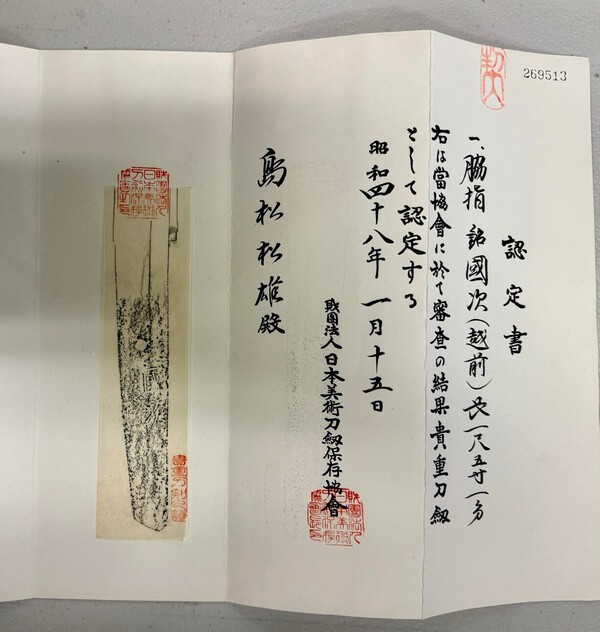 269513
認定書
一、脇指 銘國次(越前)長一尺五寸一分
右は當協會に於て審査の結果貴重刀劔
として認定する
昭和四十八年一月十五日
財團法人日本美術刀劔保存協會
島松松雄殿